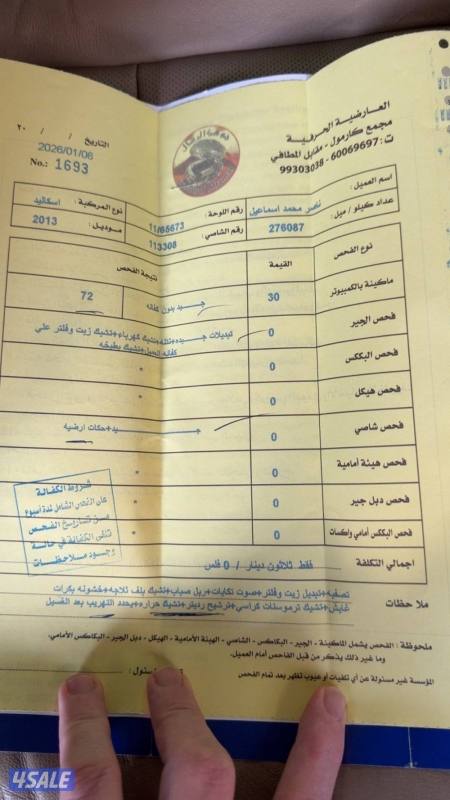 العارضية الحرفية
مجمع كارمول - مقابل المطافي
ت: 60069697 - 99303038
التاريخ / / ٢٠
2026/01/06
No.: 1693
اسم العميل: نصر محمد اسماعيل
رقم اللوحة: 11/65673
نوع المركبة: اسكاليد
عداد كيلو / ميل: 276087
رقم الشاصي: 113308
موديل: 2013
نوع الفحص القيمة نتيجة الفحص
ماكينة بالكمبيوتر 30 جـــيد بدون كفاله 72
فحص الجير 0 تبديلات جـــيده+نتله+تشيك كهرباء+تشيك زيت وفلتر على
كفالة العميل+تشيك بطيخه
فحص البككس 0 *
فحص هيكل 0 *
فحص شاصي 0 جـــيد+حكات ارضيه
فحص هيئة أمامية 0
فحص دبل جير 0 *
فحص البككس أمامي واكسات 0 *
شروط الكفالة
على الفحص الشامل لمدة أسبوع
من تاريخ الفحص
تلغى الكفالة في حالة
وجود ملاحظات
اجمالي التكلفة فقط ثلاثون دينار / 0 فلس
ملاحظات تصفيه+تبديل زيت وفلتر+صوت تكايات+ربل صباب+تشيك بلف ثلاجه+خشونه بكرات
غايش+تشيك ترموستات كراسي+ترشيح رديتر+تشيك حراره+يحدد التهريب بعد الغسيل
ملحوظة: الفحص يشمل الماكينة - الجير - البكاكس - الشاصي - الهيئة الأمامية - الهيكل - دبل الجير - البكاكس الأمامي.
وما غير ذلك يذكر من قبل الفاحص أمام العميل.
المؤسسة غير مسئولة عن أي تلفيات أو عيوب تظهر بعد تمام الفحص
4SALE